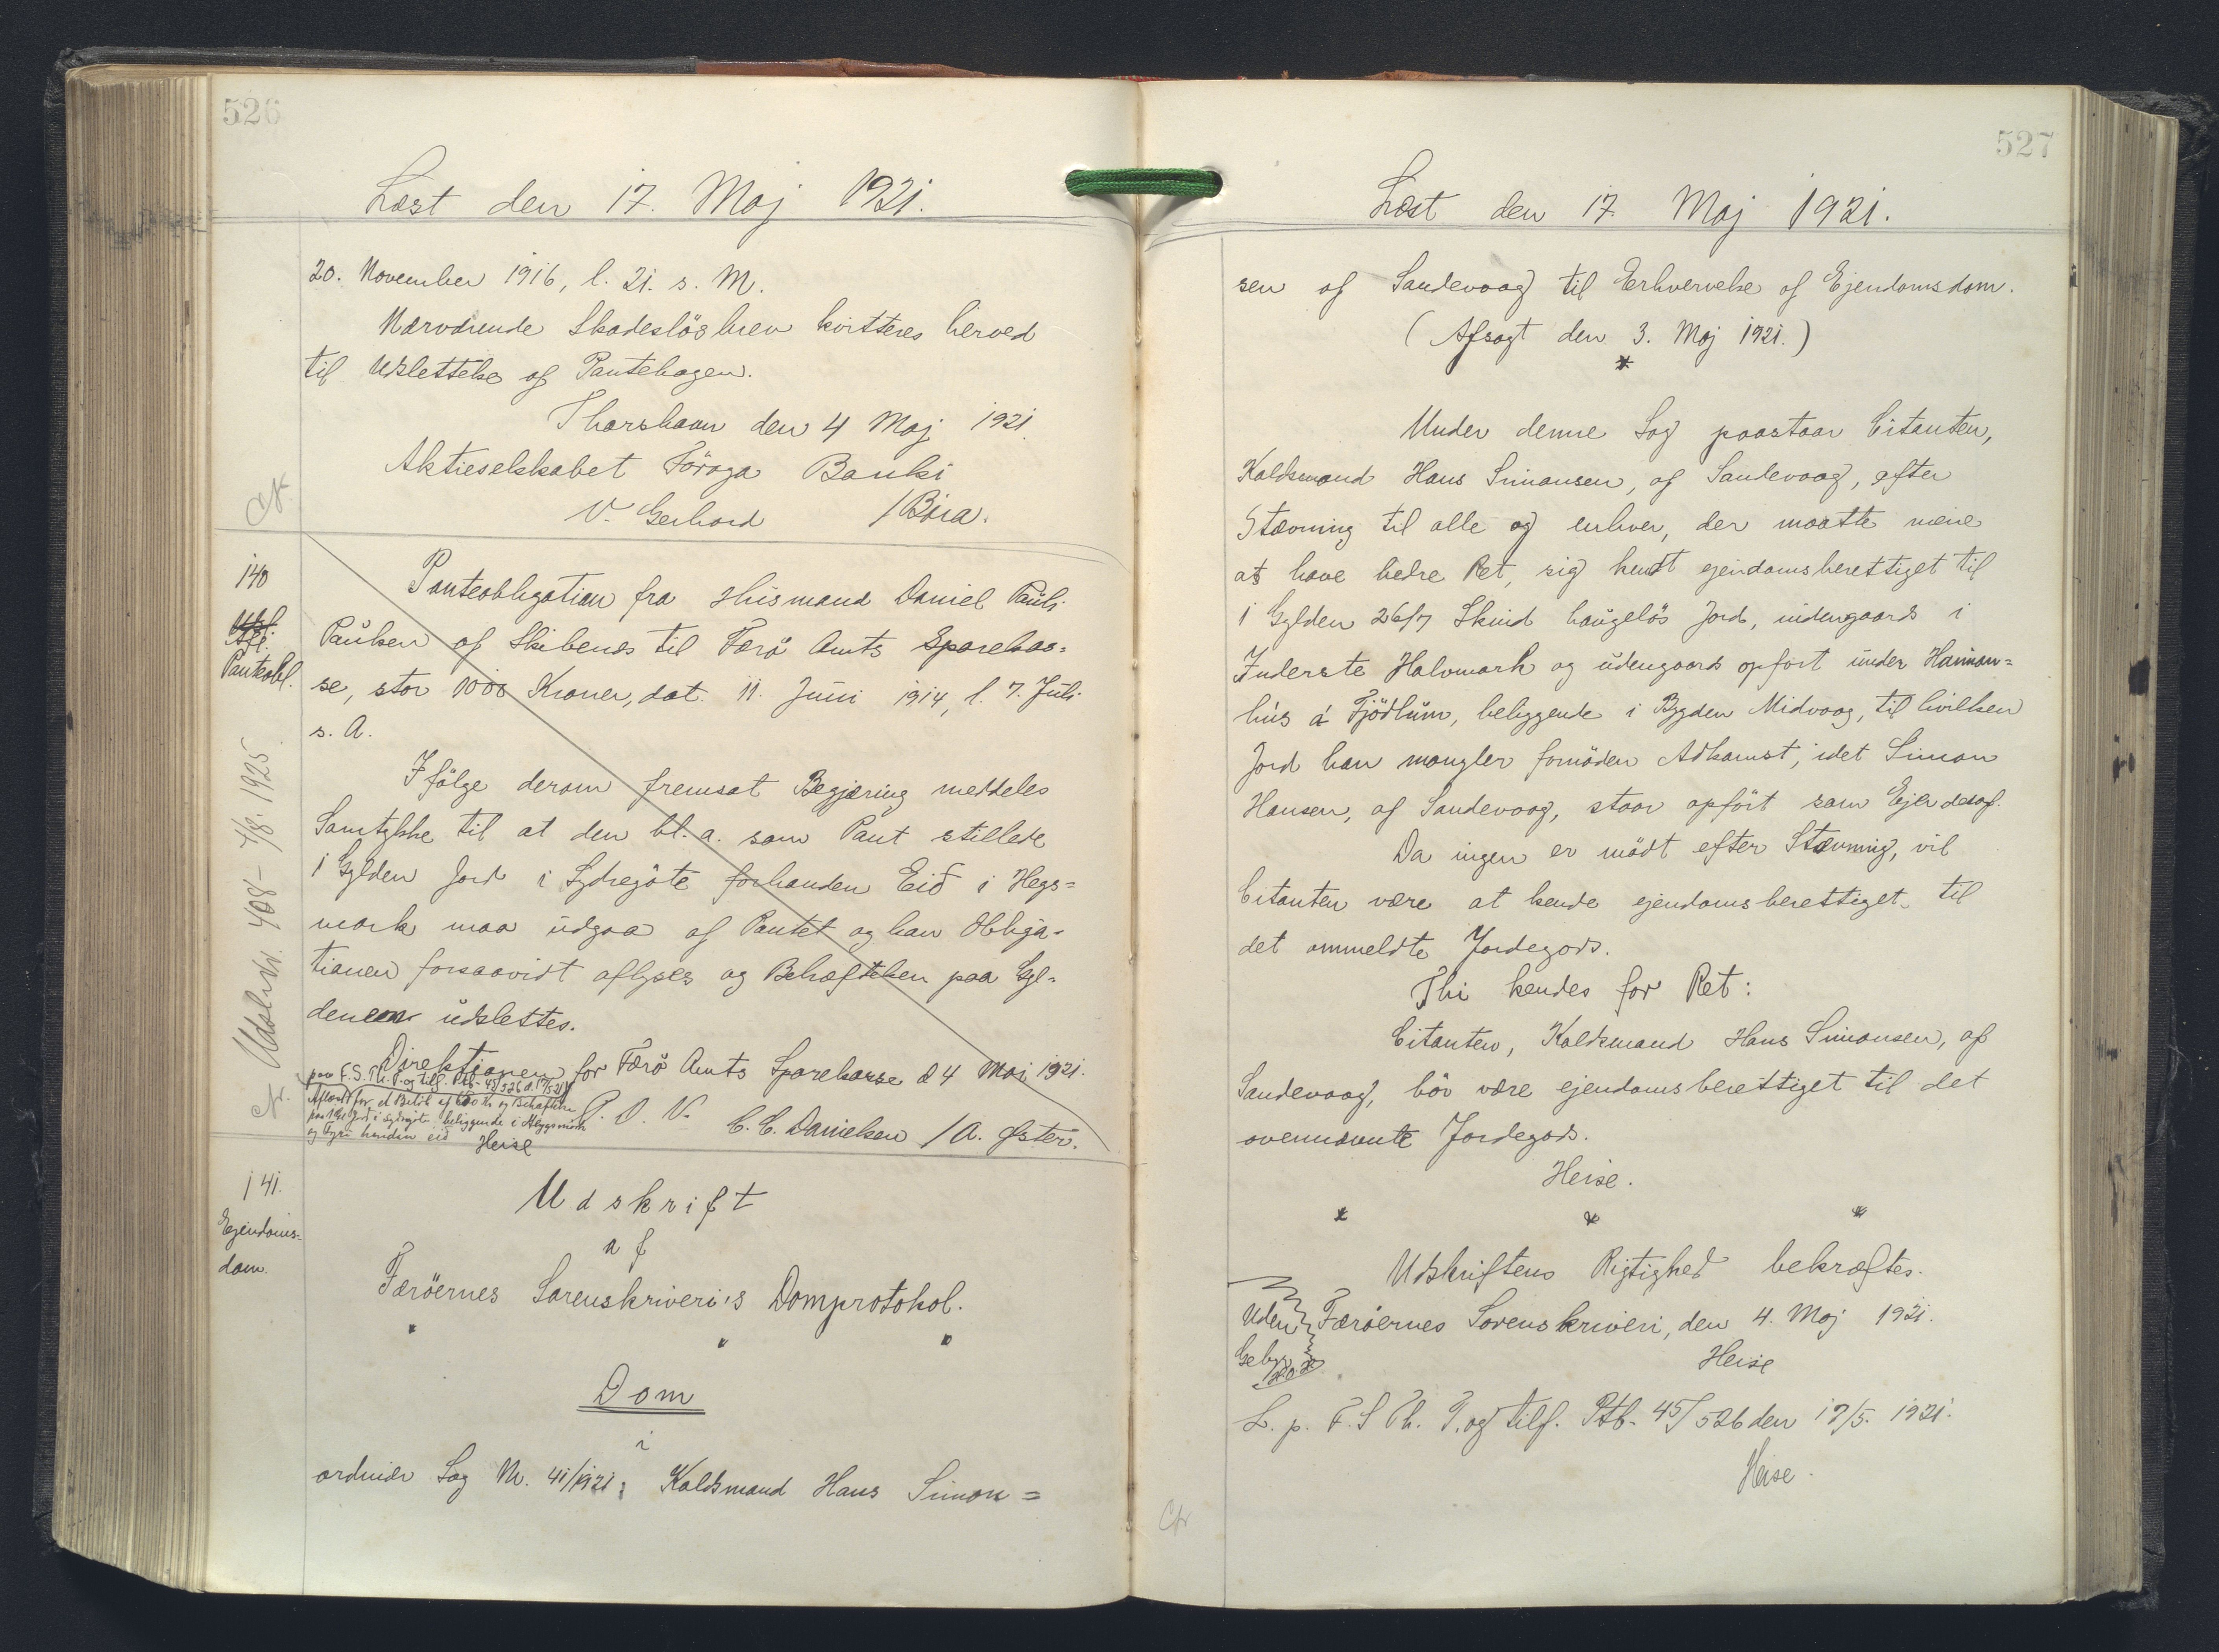 526
Læst den 17. Maj 1921.
20. November 1916, l. 21. s. M.
Nærværende Skadeslösbrev kvitteres herved
til Udslettelse af Pantebogen.
Thorshavn den 4 Maj 1921.
Aktieselskabet Föroya Banki
V. Gerhard /
Cfr.
140
Pantobl.
Panteobligation fra Husmand Daniel Pauli
Paulsen af Skibenæs til Færö Amts Sparekas=
se, stor 1000 Kroner, dat. 11. Juni 1914, l. 7. Juli
s. A.
Ifölge derom fremsat Begjæring meddeles
Samtykke til at den bl. a. som Pant stillede
1 Gylden Jord i Sydregöte forhanden Eið i Hegs=
mark maa udgaa af Pantet og kan Obliga=
tionen forsaavidt aflyses og Behæftelsen paa Gyl=
denen udslettes.
Direktionen for Færö Amts Sparekasse d 4 Maj 1921.
P. D. V. C. C. Danielsen / A. Øster.
Udslettet. 408 - 4/8. 1925.
Cfr.
paa F. S. Th. P. og tilf. Ptb. 45/526 d. 17/5 21
Aflæst for et Beløb af Kr og Behæftelsen
paa 1 Gl Jord i Sydregöte beliggende i Heggsmörk
og fyri handan eið
Heise
141.
Ejendoms=
dom.
Udskrift
af
Færöernes Sorenskriveri's Domprotokol.
Dom
i
ordinær Sag Nr. 41/1921: Kaldsmand Hans Simon=
527
Læst den 17. Maj 1921.
sen af Sandevaag til Erhvervelse af Ejendomsdom.
(Afsagt den 3. Maj 1921.)
Under denne Sag paastaar Citanten,
Kaldsmand Hans Simonsen, af Sandevaag, efter
Stævning til alle og enhver, der maatte mene
at have bedre Ret, sig kendt ejendomsberettiget til
1 Gylden 2 6/7 Skind haugelös Jord, indengaards i
Inderste Halvmark og udengaards opfört under Hanian=
hús á Fjödlum, beliggende i Bygden Midvaag, til hvilken
Jord han mangler fornöden Adkomst, idet Simon
Hansen, af Sandevaag, staar opfört som Ejer deraf.
Da ingen er mödt efter Stævning, vil
Citanten være at kende ejendomsberettiget til
det ommeldte Jordegods.
Thi kendes for Ret:
Citanten, Kaldsmand Hans Simonsen, af
Sandevaag, bör være ejendomsberettiget til det
ovennævnte Jordegods.
Heise.
Udskriftens Rigtighed bekræftes.
Uden
Gebyr
Færöernes Sorenskriveri, den 4. Maj 1921.
Heise
L. p. F. S Th. T. og tilf. Ptb. 45/526 den 17/5. 1921.
Heise.
Cfr